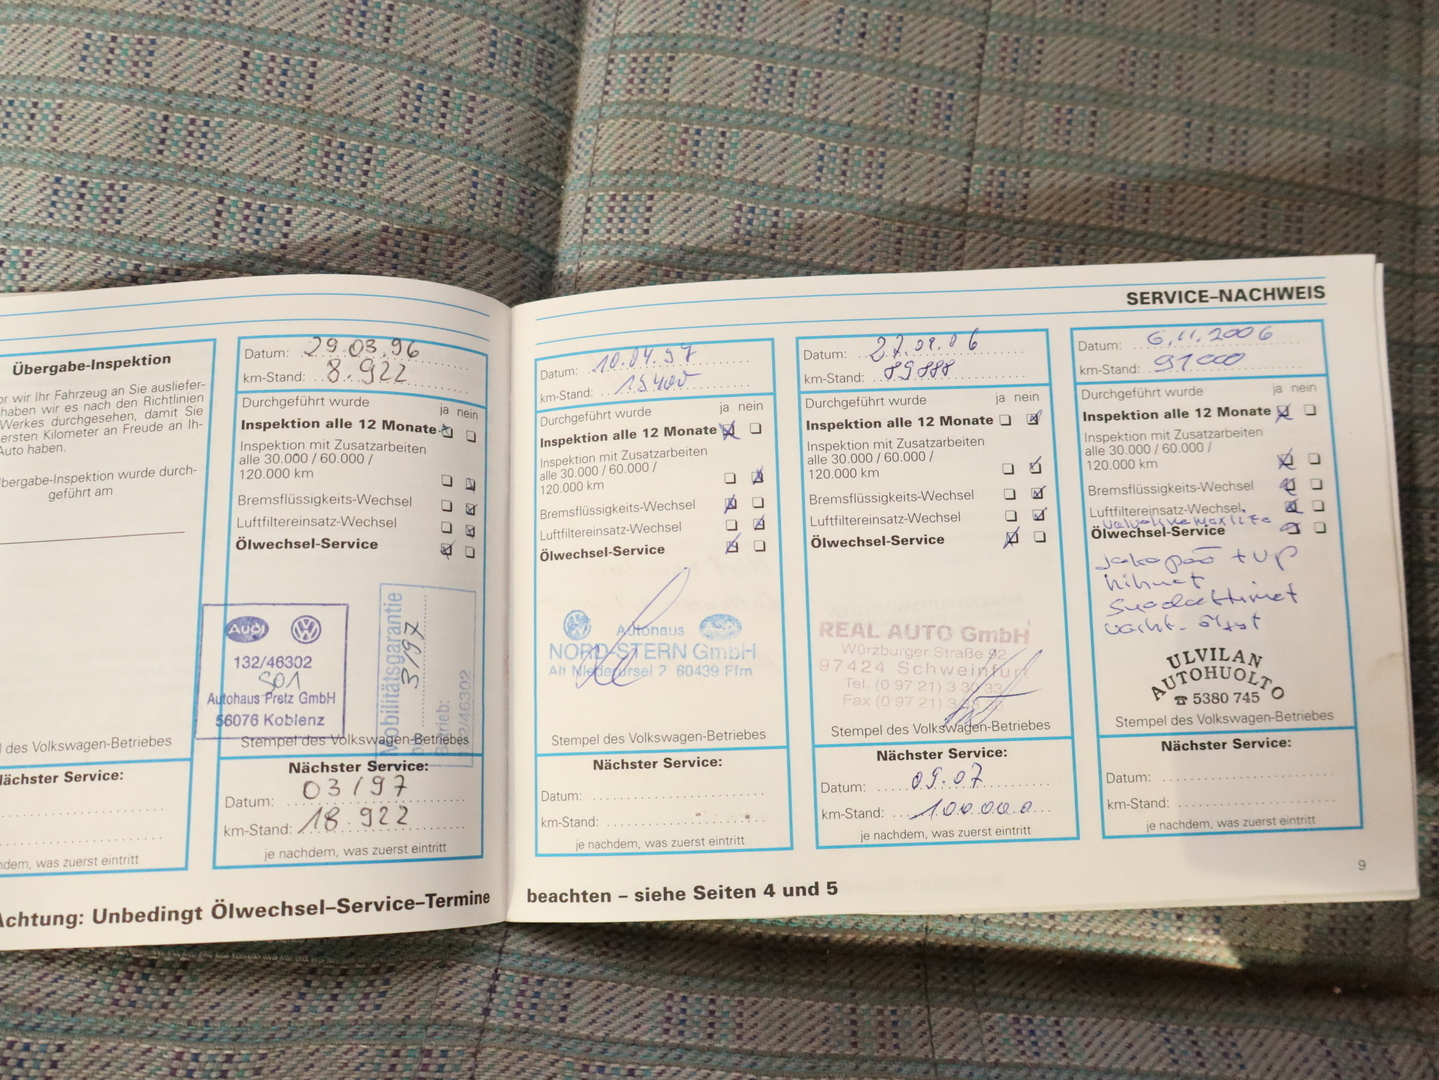 Übergabe-Inspektion
or wir Ihr Fahrzeug an Sie ausliefer-
haben wir es nach den Richtlinien
Werkes durchgesehen, damit Sie
ersten Kilometer an Freude an Ih-
Auto haben.
bergabe-Inspektion wurde durch-
geführt am
l des Volkswagen-Betriebes
ächster Service:
hdem, was zuerst eintritt
Datum: 29.03.96
km-Stand: 8.922
Durchgeführt wurde
ja nein
Inspektion alle 12 Monate
Inspektion mit Zusatzarbeiten
alle 30.000 / 60.000 /
120.000 km
Bremsflüssigkeits-Wechsel
Luftfiltereinsatz-Wechsel
Ölwechsel-Service
Audi
132/46302
Autohaus Pretz GmbH
56076 Koblenz
Mobilitätsgarantie
3/97
Betrieb:
132/46302
Stempel des Volkswagen-Betriebes
Nächster Service:
Datum: 03/97
km-Stand: 18.922
je nachdem, was zuerst eintritt
Achtung: Unbedingt Ölwechsel–Service–Termine
SERVICE–NACHWEIS
Datum: 10.04.97
km-Stand: 15400
Durchgeführt wurde
ja nein
Inspektion alle 12 Monate
Inspektion mit Zusatzarbeiten
alle 30.000 / 60.000 /
120.000 km
Bremsflüssigkeits-Wechsel
Luftfiltereinsatz-Wechsel
Ölwechsel-Service
Autohaus
NORD-STERN GmbH
Alt Niederursel 2 60439 Ffm
Stempel des Volkswagen-Betriebes
Nächster Service:
Datum:
km-Stand:
je nachdem, was zuerst eintritt
Datum:
km-Stand: 89888
Durchgeführt wurde
ja nein
Inspektion alle 12 Monate
Inspektion mit Zusatzarbeiten
alle 30.000 / 60.000 /
120.000 km
Bremsflüssigkeits-Wechsel
Luftfiltereinsatz-Wechsel
Ölwechsel-Service
REAL AUTO GmbH
Würzburger Straße 92
97424 Schweinfurt
Tel. (0 97 21) 3 30 33
Fax (0 97 21)
Stempel des Volkswagen-Betriebes
Nächster Service:
Datum: 09.07
km-Stand: 100.000
je nachdem, was zuerst eintritt
Datum: 6.11.2006
km-Stand: 91000
Durchgeführt wurde
ja nein
Inspektion alle 12 Monate
Inspektion mit Zusatzarbeiten
alle 30.000 / 60.000 /
120.000 km
Bremsflüssigkeits-Wechsel
Luftfiltereinsatz-Wechsel
Ölwechsel-Service
jakopää + vp
hihnat
Suodattimet
ULVILAN
AUTOHUOLTO
☎ 5380 745
Stempel des Volkswagen-Betriebes
Nächster Service:
Datum:
km-Stand:
je nachdem, was zuerst eintritt
beachten – siehe Seiten 4 und 5
9